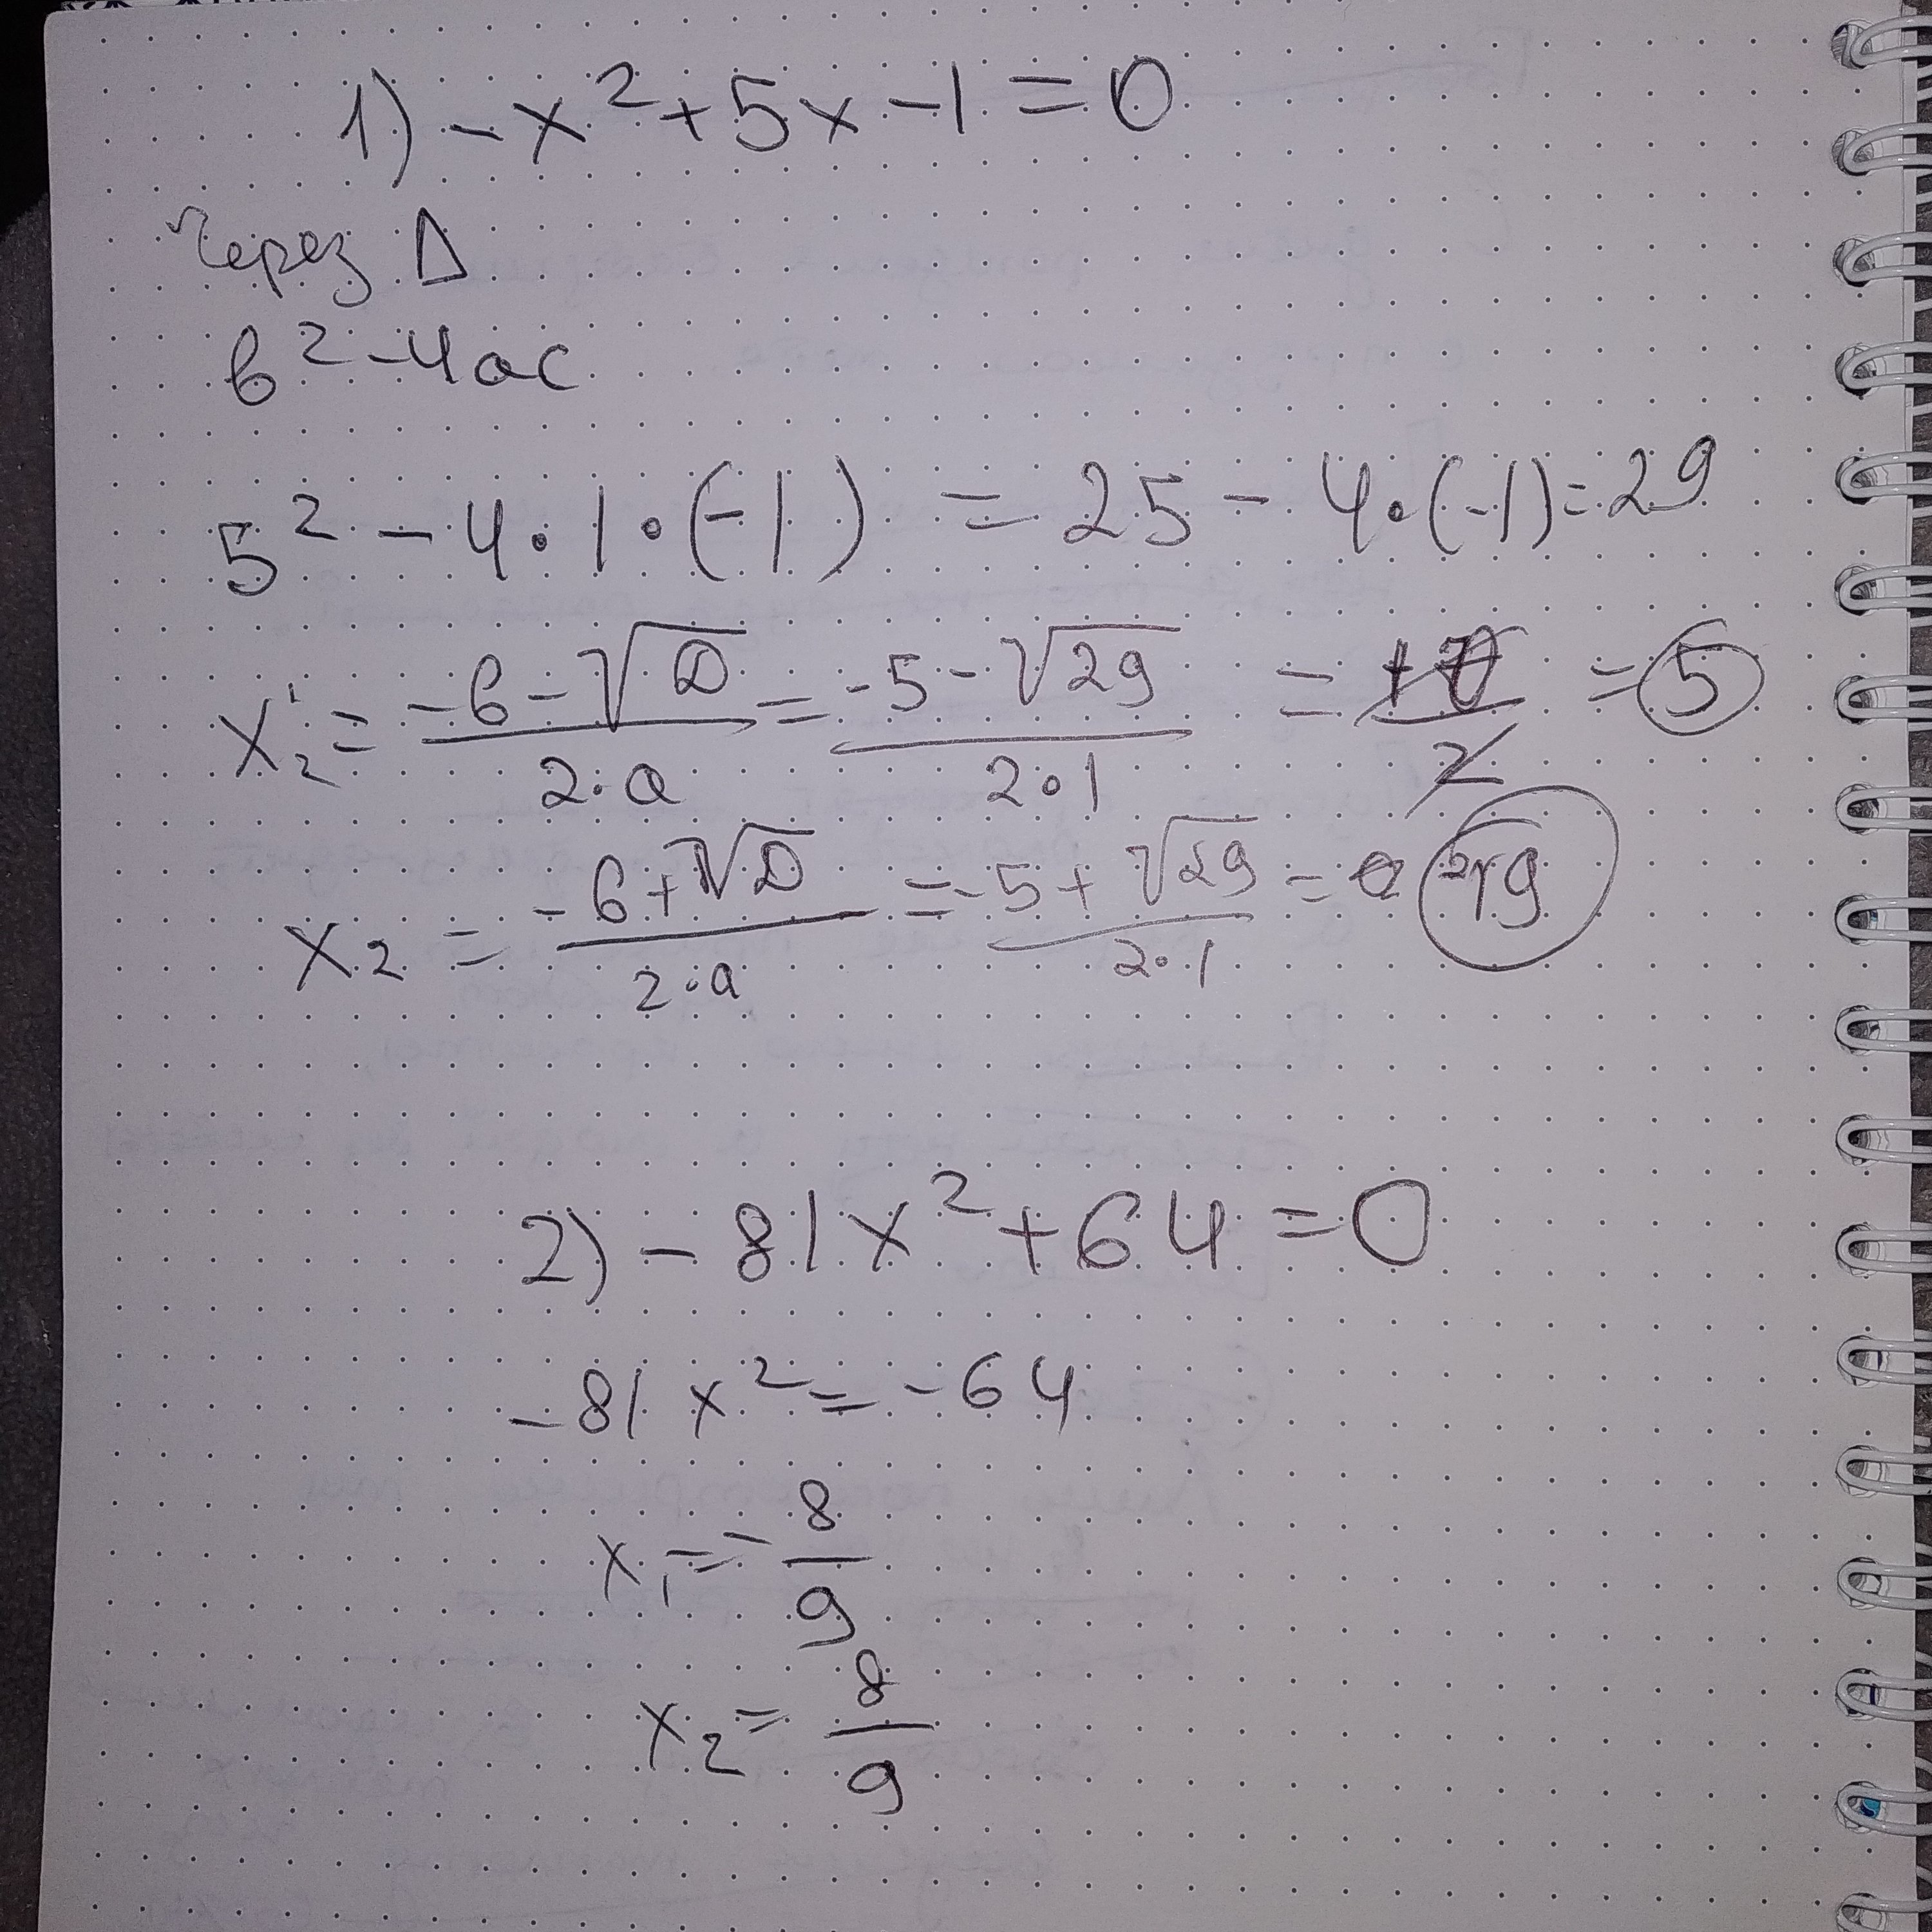 1) -x² + 5x - 1 = 0
Через D
в² - 4ас
5² - 4 · 1 · (-1) = 25 - 4 · (-1) = 29
x = (-в - √D) / (2 · а) = (-5 - √29) / (2 · 1) = = 5
x₂ = (-в + √D) / (2 · а) = (-5 + √29) / (2 · 1) =
2) -81x² + 64 = 0
-81x² = -64
x₁ = -8/9
x₂ = 8/9